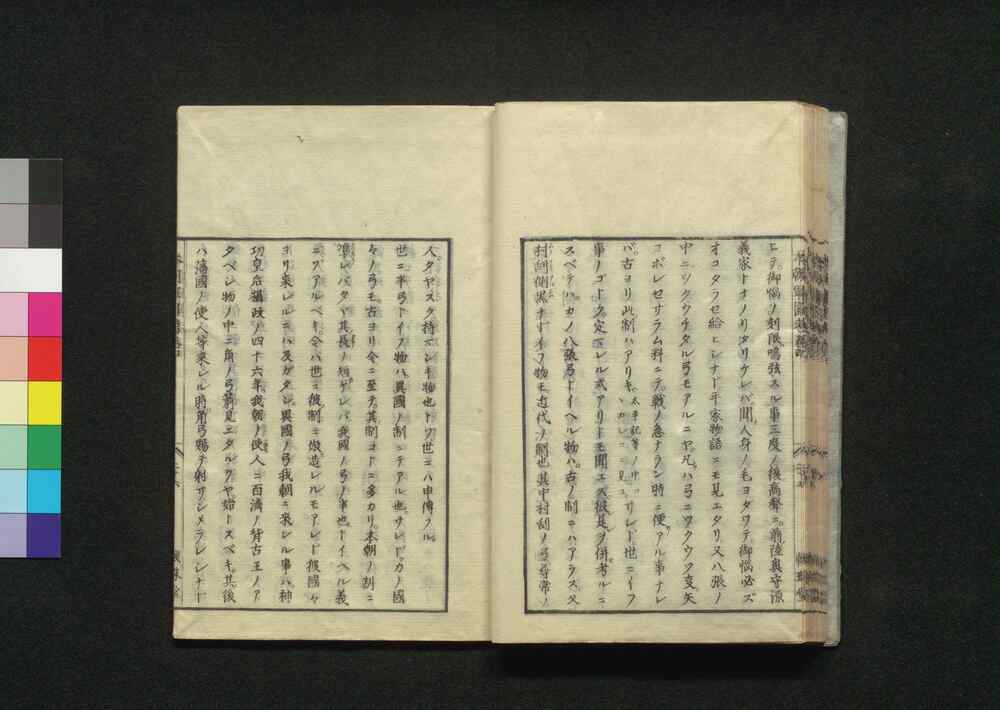 ヒテ御悩ノ刻限鳴弦スル事三度ノ後高聲ニ前陸奥守源
義家トナノリタリケレバ聞人身ノ毛ヨダツテ御悩必ズ
オコタラセ給ヒシナド平家物語ニモ見エタリ又八張ノ
中ニツクウチタル弓モアルニヤ凡ハ弓ニツクウツ支矢
コボレセザラム料ニテ戦ノ急ナラン時ニ便アル事ナレ
バ古ヨリ此制ハアリキ太平記等ノ中リシレド世ニイフ
事ノゴトク定レル式アリトモ聞エズ彼是ヲ併考ルニ
スベテハカノ八張弓トイヘル物ハ古ノ制ニハアラズ又
村刮側黒ナドイフ物モ近代ノ制也其中村刮ノ弓尋常ノ
人タヤスク持マシキ物也トゾ世ニハ申傳フル
世ニ半弓トイフ物ハ異國ノ制ニテアル也サレドカノ國
々ノ弓モ古ヨリ今ニ至テ其制コトニ多カリ本朝ノ制ニ
準レバタヾ其長ノ短ケレバ我國ノ弓ノ半也トイヘル義
ニテアルベキ今ハ世ニ彼制ニ傚造レルモアレド彼國々
ヨリ来レルニハ及ガタシ異國ノ弓我朝ニ来レル事ハ神
功皇后攝政ノ四十六年我朝ノ使人ニ百済ノ肖古王ノア
タヘシ物ノ中ニ角ノ弓箭見エタルヲヤ始トスベキ其後
ハ蕃國ノ使人等来レル時角弓賜テ射サシメラレシナド